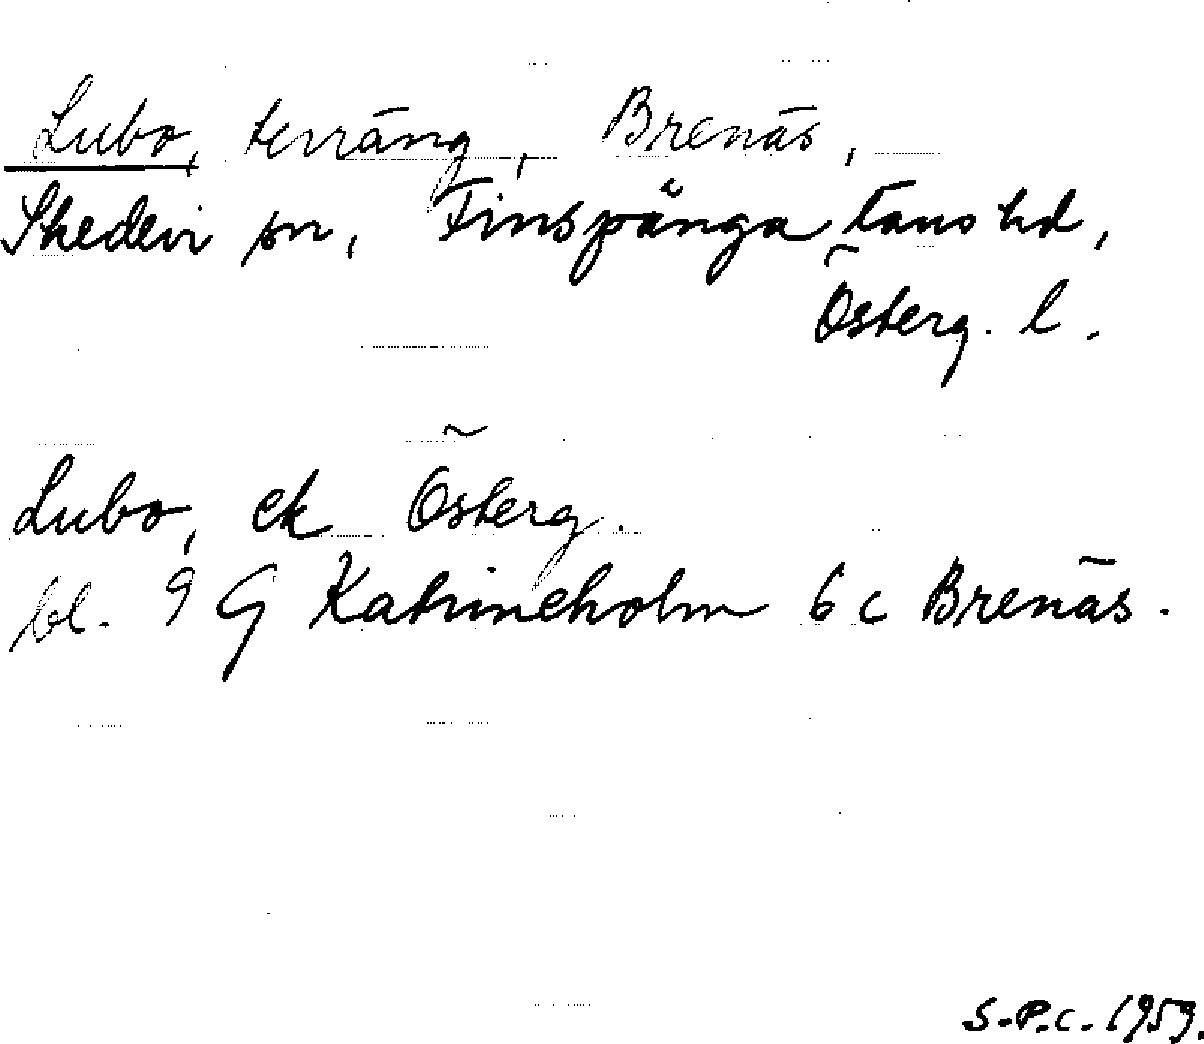 Lubo, terräng, Brenäs,
Skedevi sn, Finspånga läns hd,
Österg. l.
Lubo, ek Österg.
bl. 9 G Katrineholm 6 c Brenäs.
S-P.C. 1959.